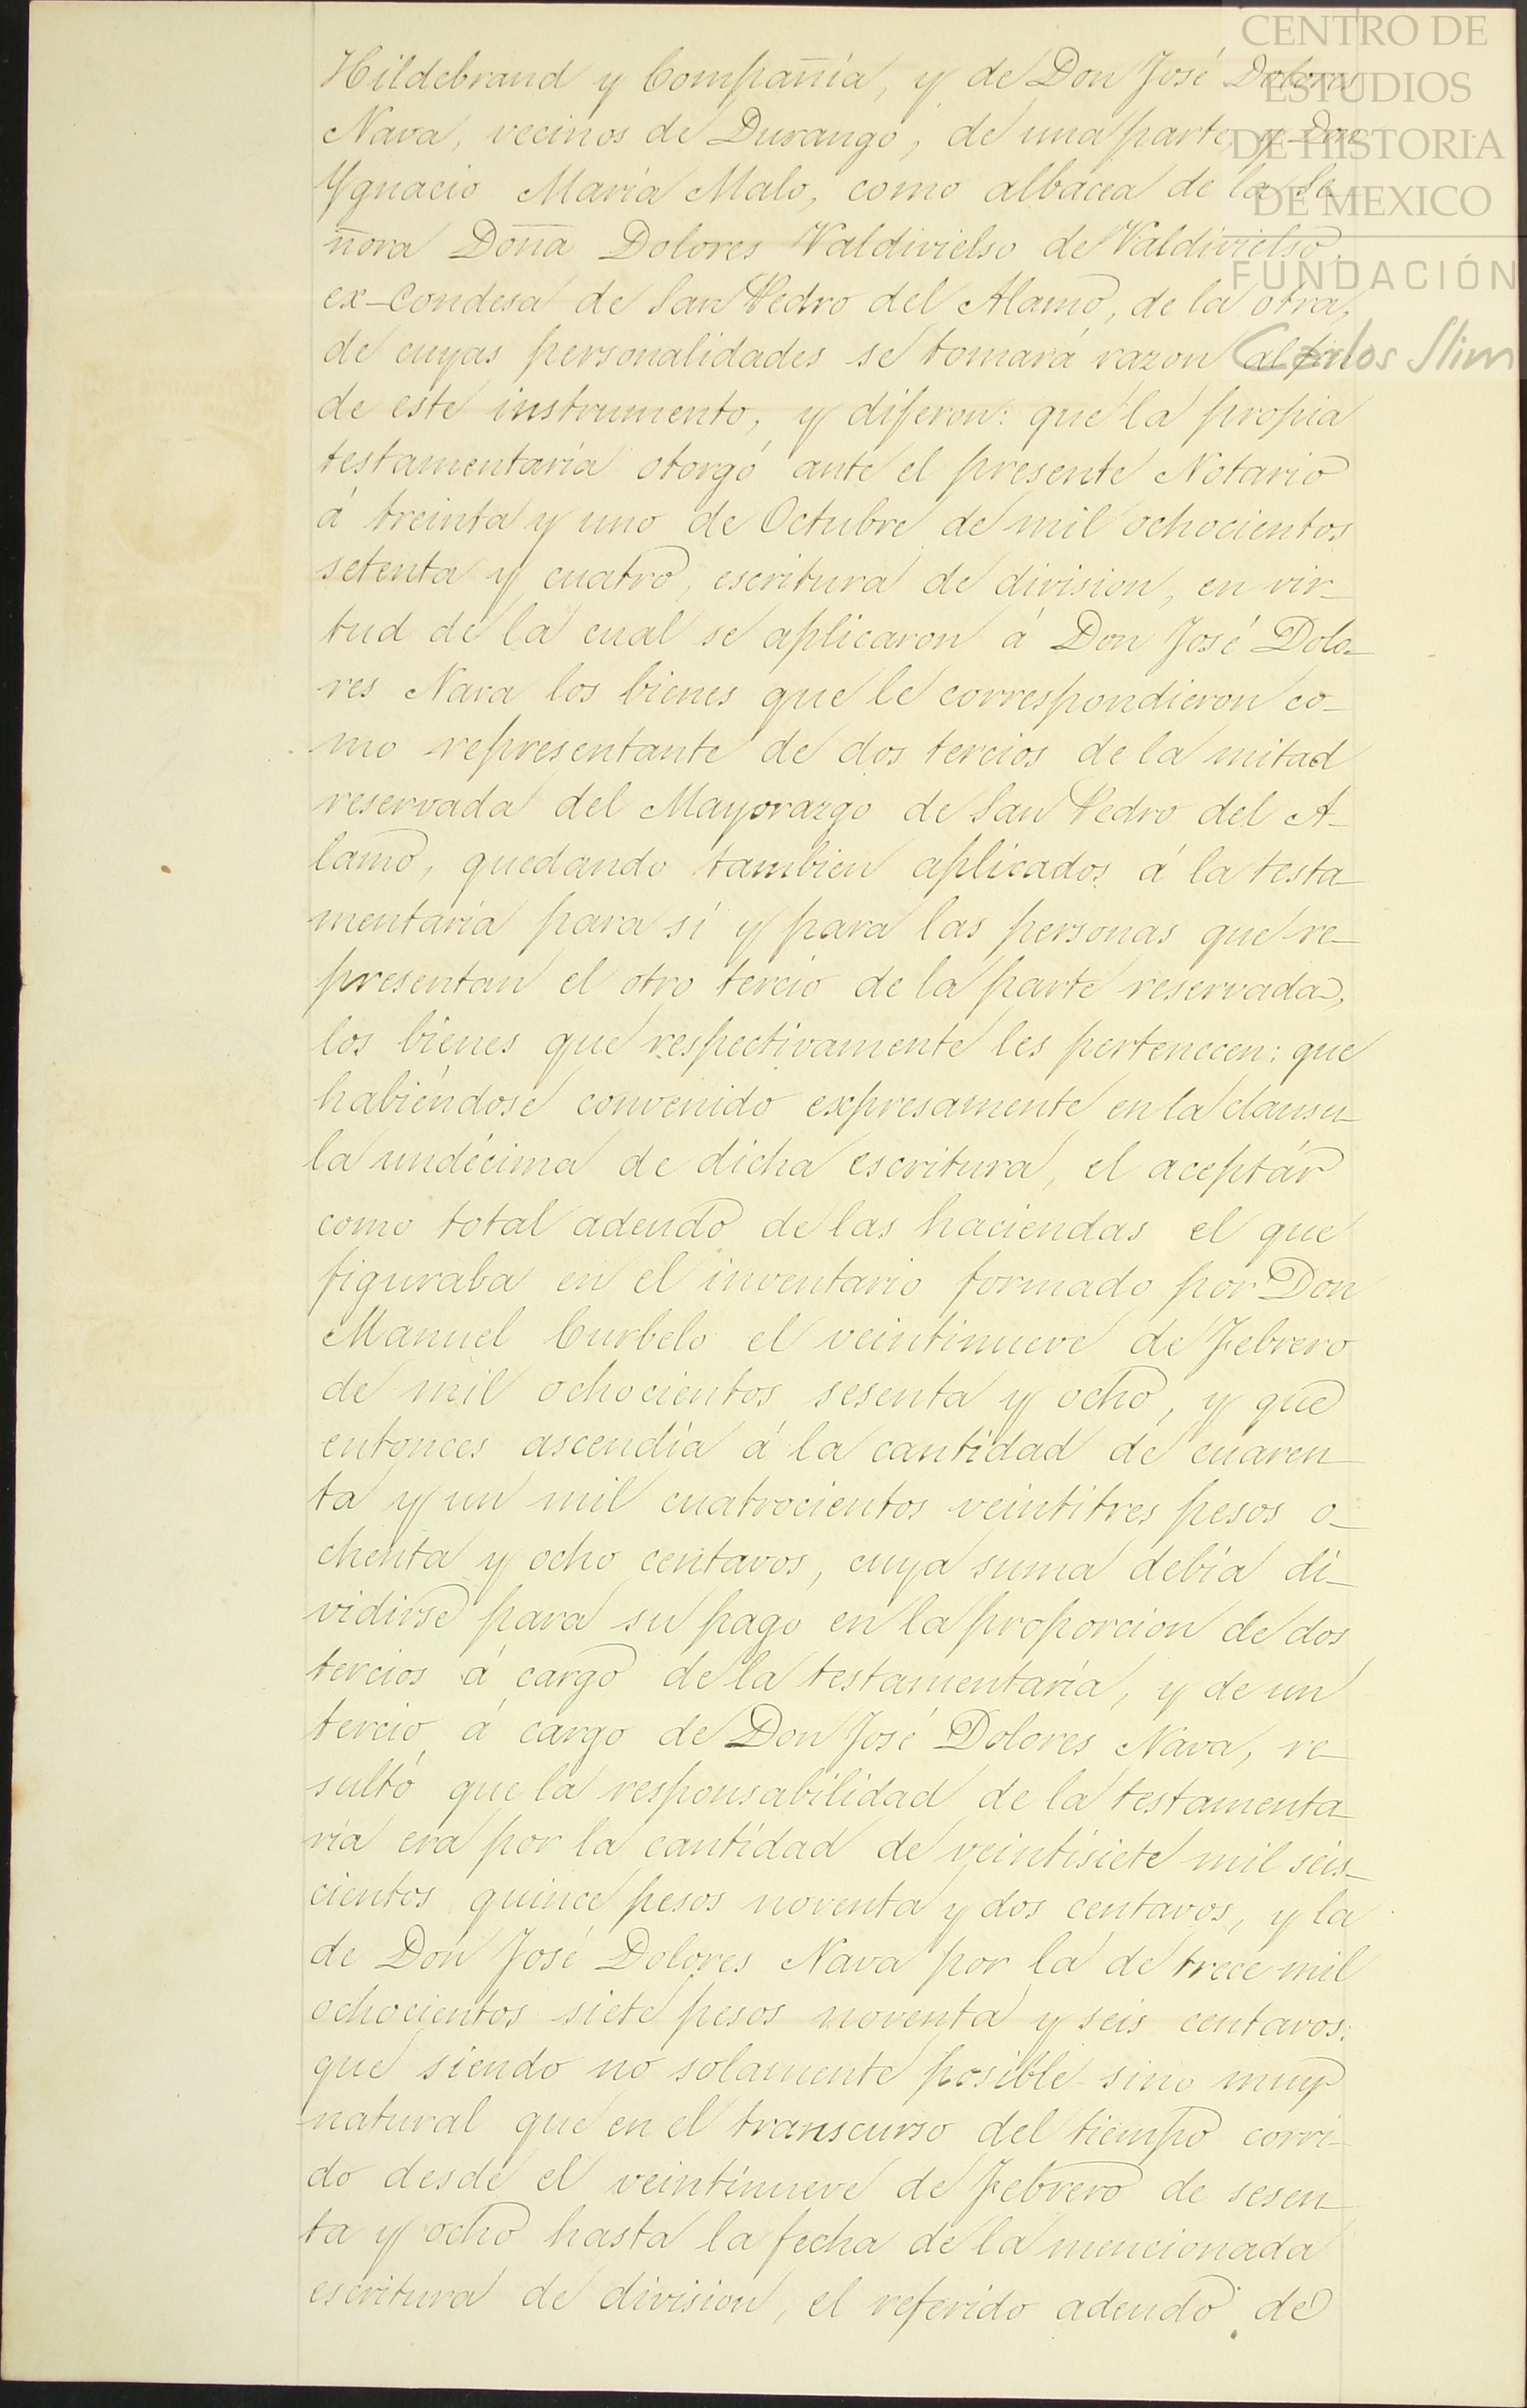 CENTRO DE
ESTUDIOS
DE HISTORIA
DE MEXICO
FUNDACIÓN
Carlos Slim
Hildebrand y Compañía, y de Don José Dolores
Nava, vecinos de Durango, de una parte, y Don
Ygnacio María Malo, como albacea de la Se-
ñora Doña Dolores Valdivielso de Valdivielso,
ex-Condesa de San Pedro del Alamo, de la otra,
de cuyas personalidades se tomará razon al fin
de este instrumento, y dijeron: que la propia
testamentaría otorgó ante el presente Notario
á treinta y uno de Octubre de mil ochocientos
setenta y cuatro, escritura de division, en vir-
tud de la cual se aplicaron á Don José Dolo-
res Nava los bienes que le correspondieron co-
mo representante de dos tercios de la mitad
reservada del Mayorazgo de San Pedro del A-
lamo, quedando tambien aplicados á la testa-
mentaría para sí y para las personas que re-
presentan el otro tercio de la parte reservada,
los bienes que respectivamente les pertenecen: que
habiéndose convenido expresamente en la clausu-
la undécima de dicha escritura, el aceptár
como total adeudo de las haciendas el que
figuraba en el inventario formado por Don
Manuel Curbelo el veintinueve de Febrero
de mil ochocientos sesenta y ocho, y que
entonces ascendía á la cantidad de cuaren-
ta y un mil cuatrocientos veintitres pesos o-
chenta y ocho centavos, cuya suma debía di-
vidirse para su pago en la proporcion de dos
tercios á cargo de la testamentaría, y de un
tercio á cargo de Don José Dolores Nava, re-
sultó que la responsabilidad de la testamenta-
ría era por la cantidad de veintisiete mil seis-
cientos quince pesos noventa y dos centavos, y la
de Don José Dolores Nava por la de trece mil
ochocientos siete pesos noventa y seis centavos:
que siendo no solamente posible sino muy
natural que en el transcurso del tiempo corri-
do desde el veintinueve de Febrero de sesen-
ta y ocho hasta la fecha de la mencionada
escritura de division, el referido adeudo de